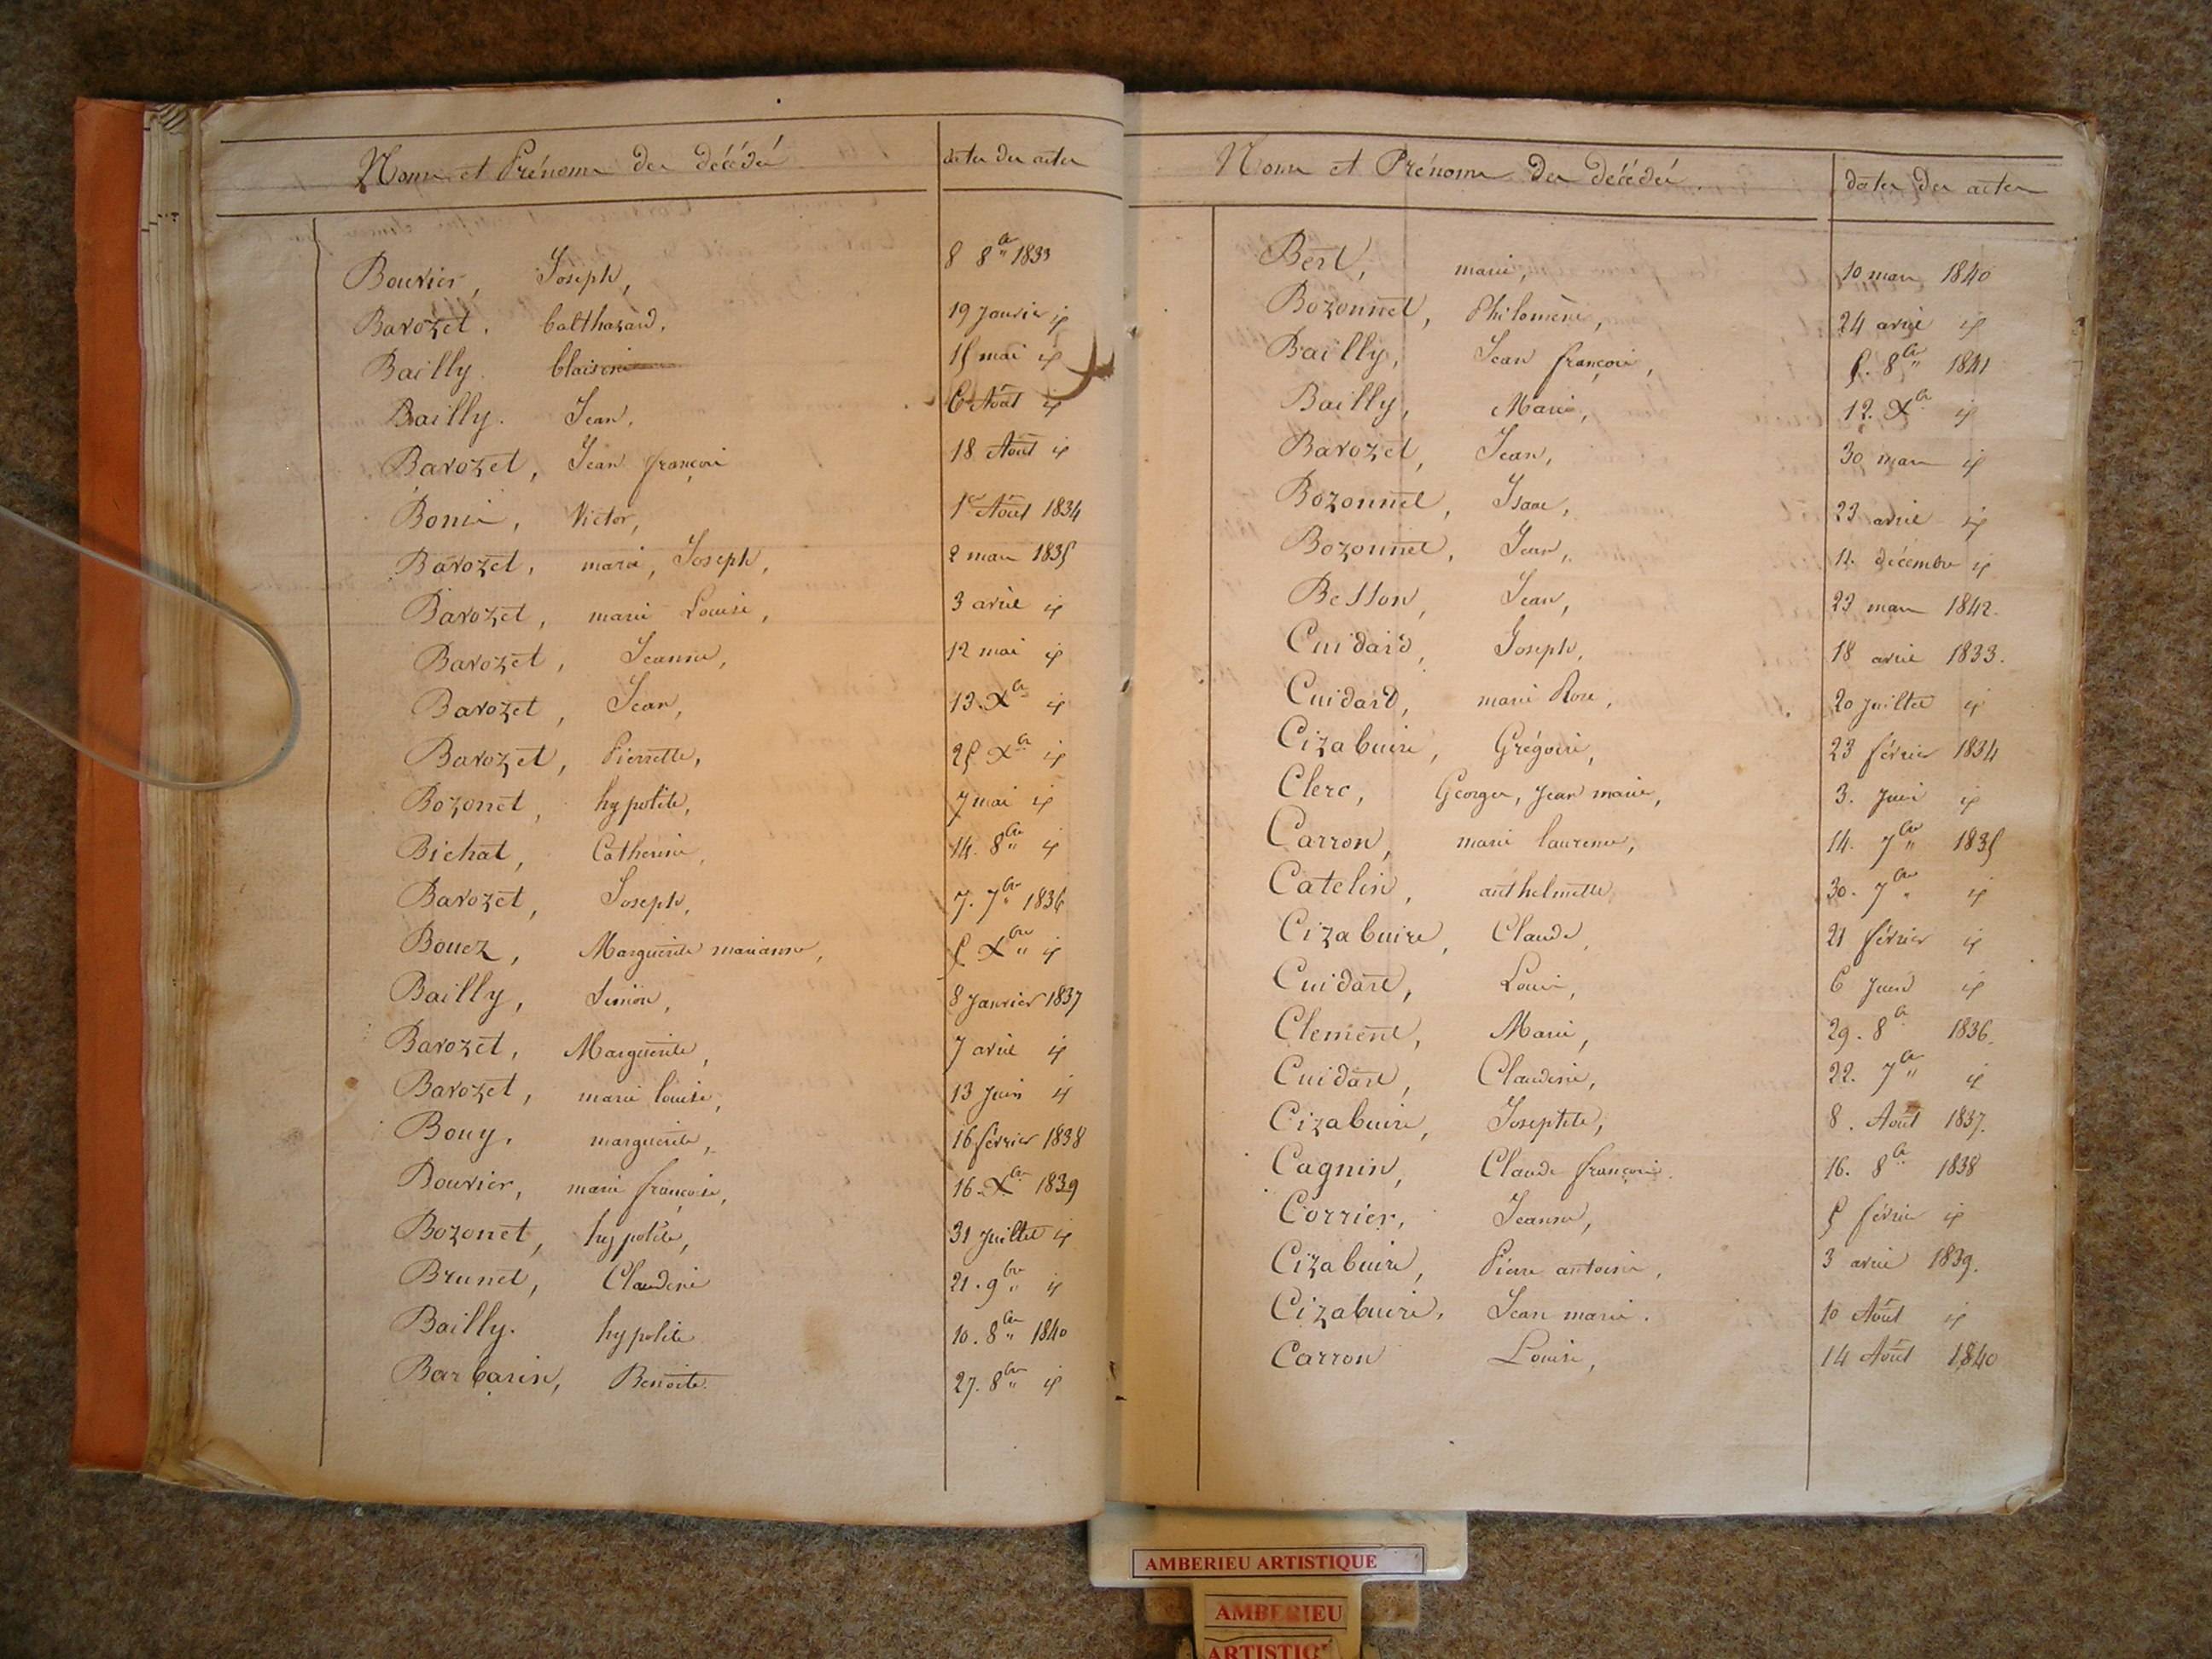 Noms et Prénoms des décédés dates des actes
Bouvier, Joseph, 8 8bre 1833
Barozet. balthazard. 19 Janvier id
Bailly. blaisine 15 mai id
Bailly. Jean, 6 Août id
Barozet, Jean françois 18 Août id
Bonin, Victor, 1er Août 1834
Barozet, marie, Joseph, 2 mars 1835
Barozet, marie Louise, 3 avril id
Barozet, Jeanne, 12 mai id
Barozet, Jean, 13. Xbre id
Barozet, Pierrette, 25 Xbre id
Bozonet, hypolite, 7 mai id
Bichat, Catherine, 14. 8bre id
Barozet, Joseph, 7. 7bre 1836
Bouez, Marguerite marianne, 5 Xbre id
Bailly, Simon, 8 Janvier 1837
Barozet, Marguerite, 7 avril id
Barozet, marie louise, 13 Juin id
Bouy, marguerite, 16 février 1838
Bouvier, marie françoise, 16. Xbre 1839
Bozonet, hypolite, 31 Juillet id
Brunet, Claudine 21. 9bre id
Bailly. hypolite 10. 8bre 1840
Barbarin, Benoite. 27. 8bre id
Noms et Prénoms des décédés. dates des actes
Bert, marie, 10 mars 1840
Bozonnet, Philomène, 24 avril id
Bailly, Jean françois, 5. 8bre 1841
Bailly, Marie, 12. Xbre id
Barozet, Jean, 30 mars id
Bozonnet, Isaac, 23 avril id
Bozonnet, Jean, 12. décembre id
Besson, Jean, 23 mars 1842.
Cuidard, Joseph, 18 avril 1833.
Cuidard, marie Rose, 20 Juillet id
Cizabuire, Grégoire, 23 février 1834
Clerc, Georges, Jean marie, 3. Juin id
Carron, marie laurence, 14. 7bre 1835
Catelin, anthelmette, 30. 7bre id
Cizabuire, Claude, 21 février id
Cuidard, Louis, 6 Juin id
Clement, Marie, 29. 8bre 1836.
Cuidard, Claudine, 22. 7bre id
Cizabuire, Josephte, 8. Août 1837.
Cagnin, Claude françois. 16. 8bre 1838
Corrier, Jeanne, 5 février id
Cizabuire, Pierre antoine, 3 avril 1839.
Cizabuire, Jean marie. 10 Août id
Carron Louise, 14 Août 1840
AMBERIEU ARTISTIQUE
AMBERIEU